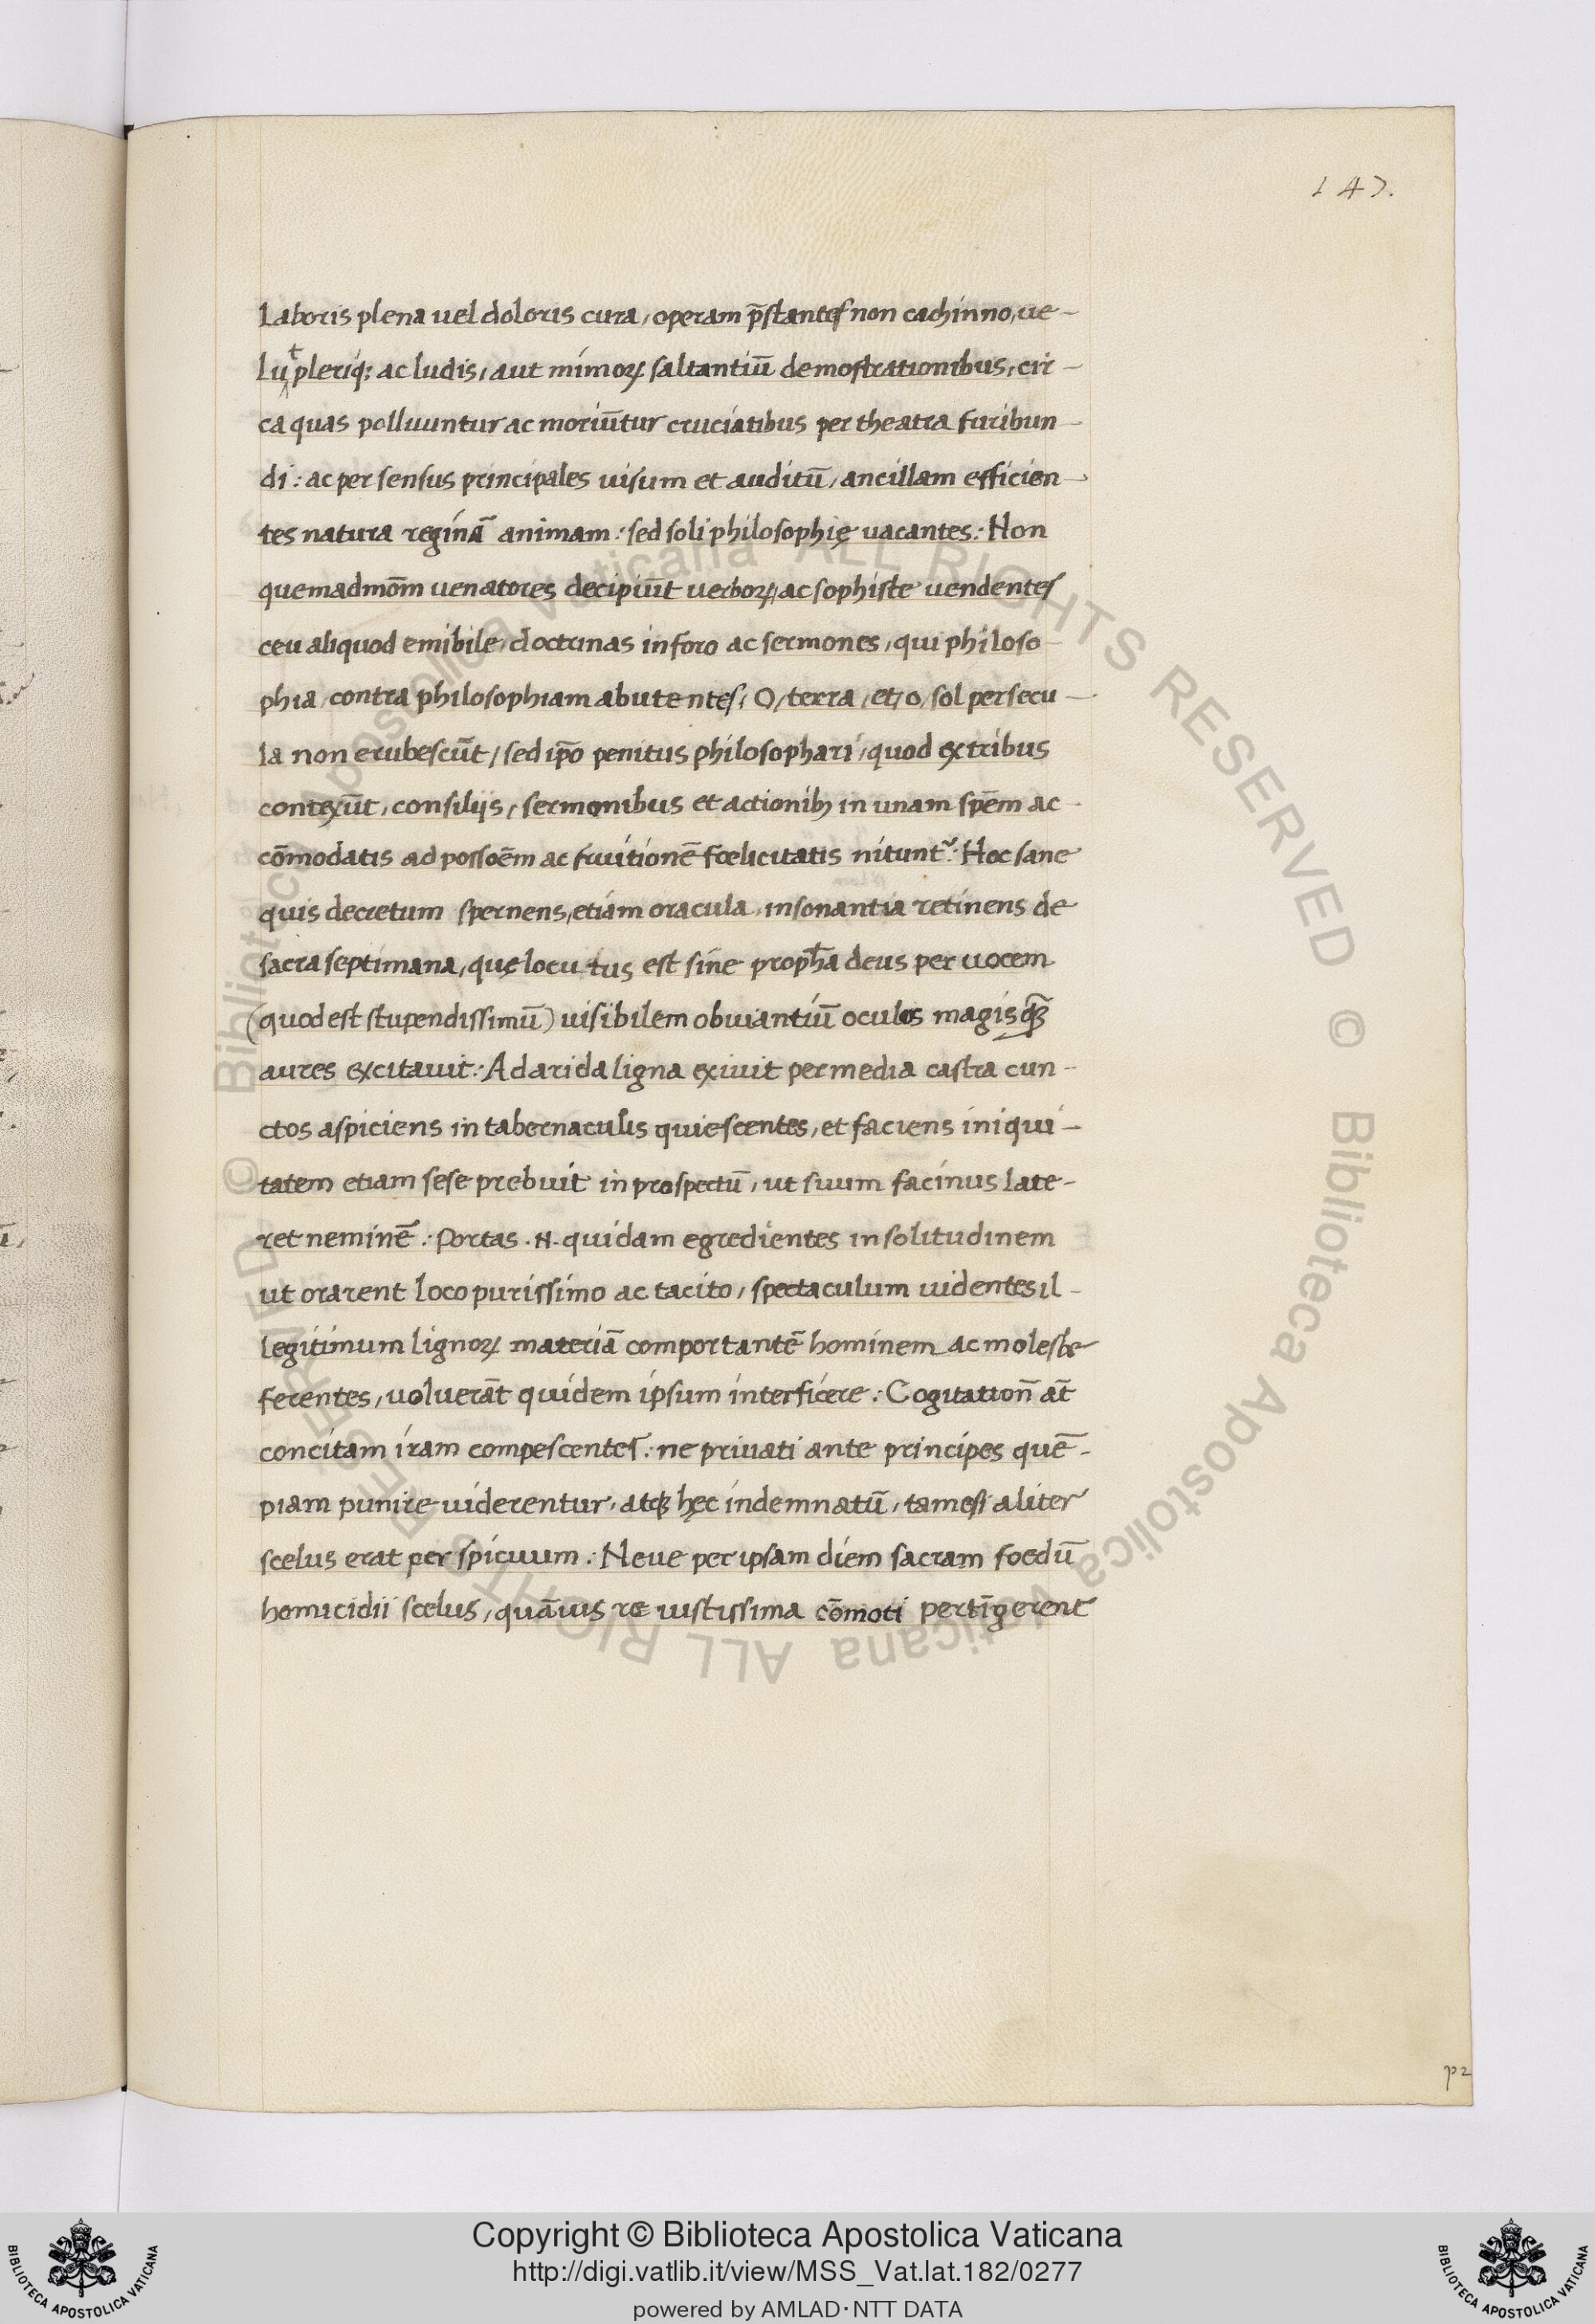 147.
Laboris plena uel doloris cura, operam p̄stantes non cachinno, ue-
lut pleriq; ac ludis, aut mimoꝝ saltantiū demostrationibus, cir-
ca quas polluuntur ac moriūtur cruciatibus per theatra furibun-
di: ac per sensus principales uisum et auditū, ancillam efficien-
tes natura reginā animam: sed soli philosophię uacantes: Non
quemadmōm uenatores decipiūt uerboꝝ, ac sophiste uendentes
ceu aliquod emibile, doctrinas in foro ac sermones, qui philoso-
phia, contra philosophiam abutentes, O, terra, et, o, sol per secu-
la non erubescūt, sed ip̄o penitus philosophari, quod ex tribus
contexūt, consilijs, sermonibus et actionibꝫ in unam spēm ac-
cōmodatis ad possoēm ac fruitionē fœlicitatis nitunt᷑: Hoc sane
quis decretum spernens, etiam oracula insonantia retinens de
sacra septimana, quę locutus est sine proph̄a deus per uocem
(quod est stupendissimū) uisibilem obuiantiū oculos magis qꝫ̄
aures excitauit: Ad arida ligna exiuit per media castra cun-
ctos aspiciens in tabernaculis quiescentes, et faciens iniqui-
tatem etiam sese prebuit in prospectū, ut suum facinus late-
ret neminē: Portas .N. quidam egredientes in solitudinem
ut orarent loco purissimo ac tacito, spectaculum uidentes il-
legitimum lignoꝝ materiā comportantē hominem ac moleste
ferentes, uoluerāt quidem ipsum interficere: Cogitation̄ āt
concitam iram compescentes: ne priuati ante principes quē-
piam punire uiderentur, atqꝫ hęc indemnatū, tamesi aliter
scelus erat perspicuum: Neue per ipsam diem sacram foedū
homicidii scelus, quāuis re iustissima cōmoti pertīgerent
p2
Copyright © Biblioteca Apostolica Vaticana
http://digi.vatlib.it/view/MSS_Vat.lat.182/0277
powered by AMLAD·NTT DATA
BIBLIOTECA APOSTOLICA VATICANA
BIBLIOTECA APOSTOLICA VATICANA
© Biblioteca Apostolica Vaticana ALL RIGHTS RESERVED © Biblioteca Apostolica Vaticana ALL RIGHTS RESERVED